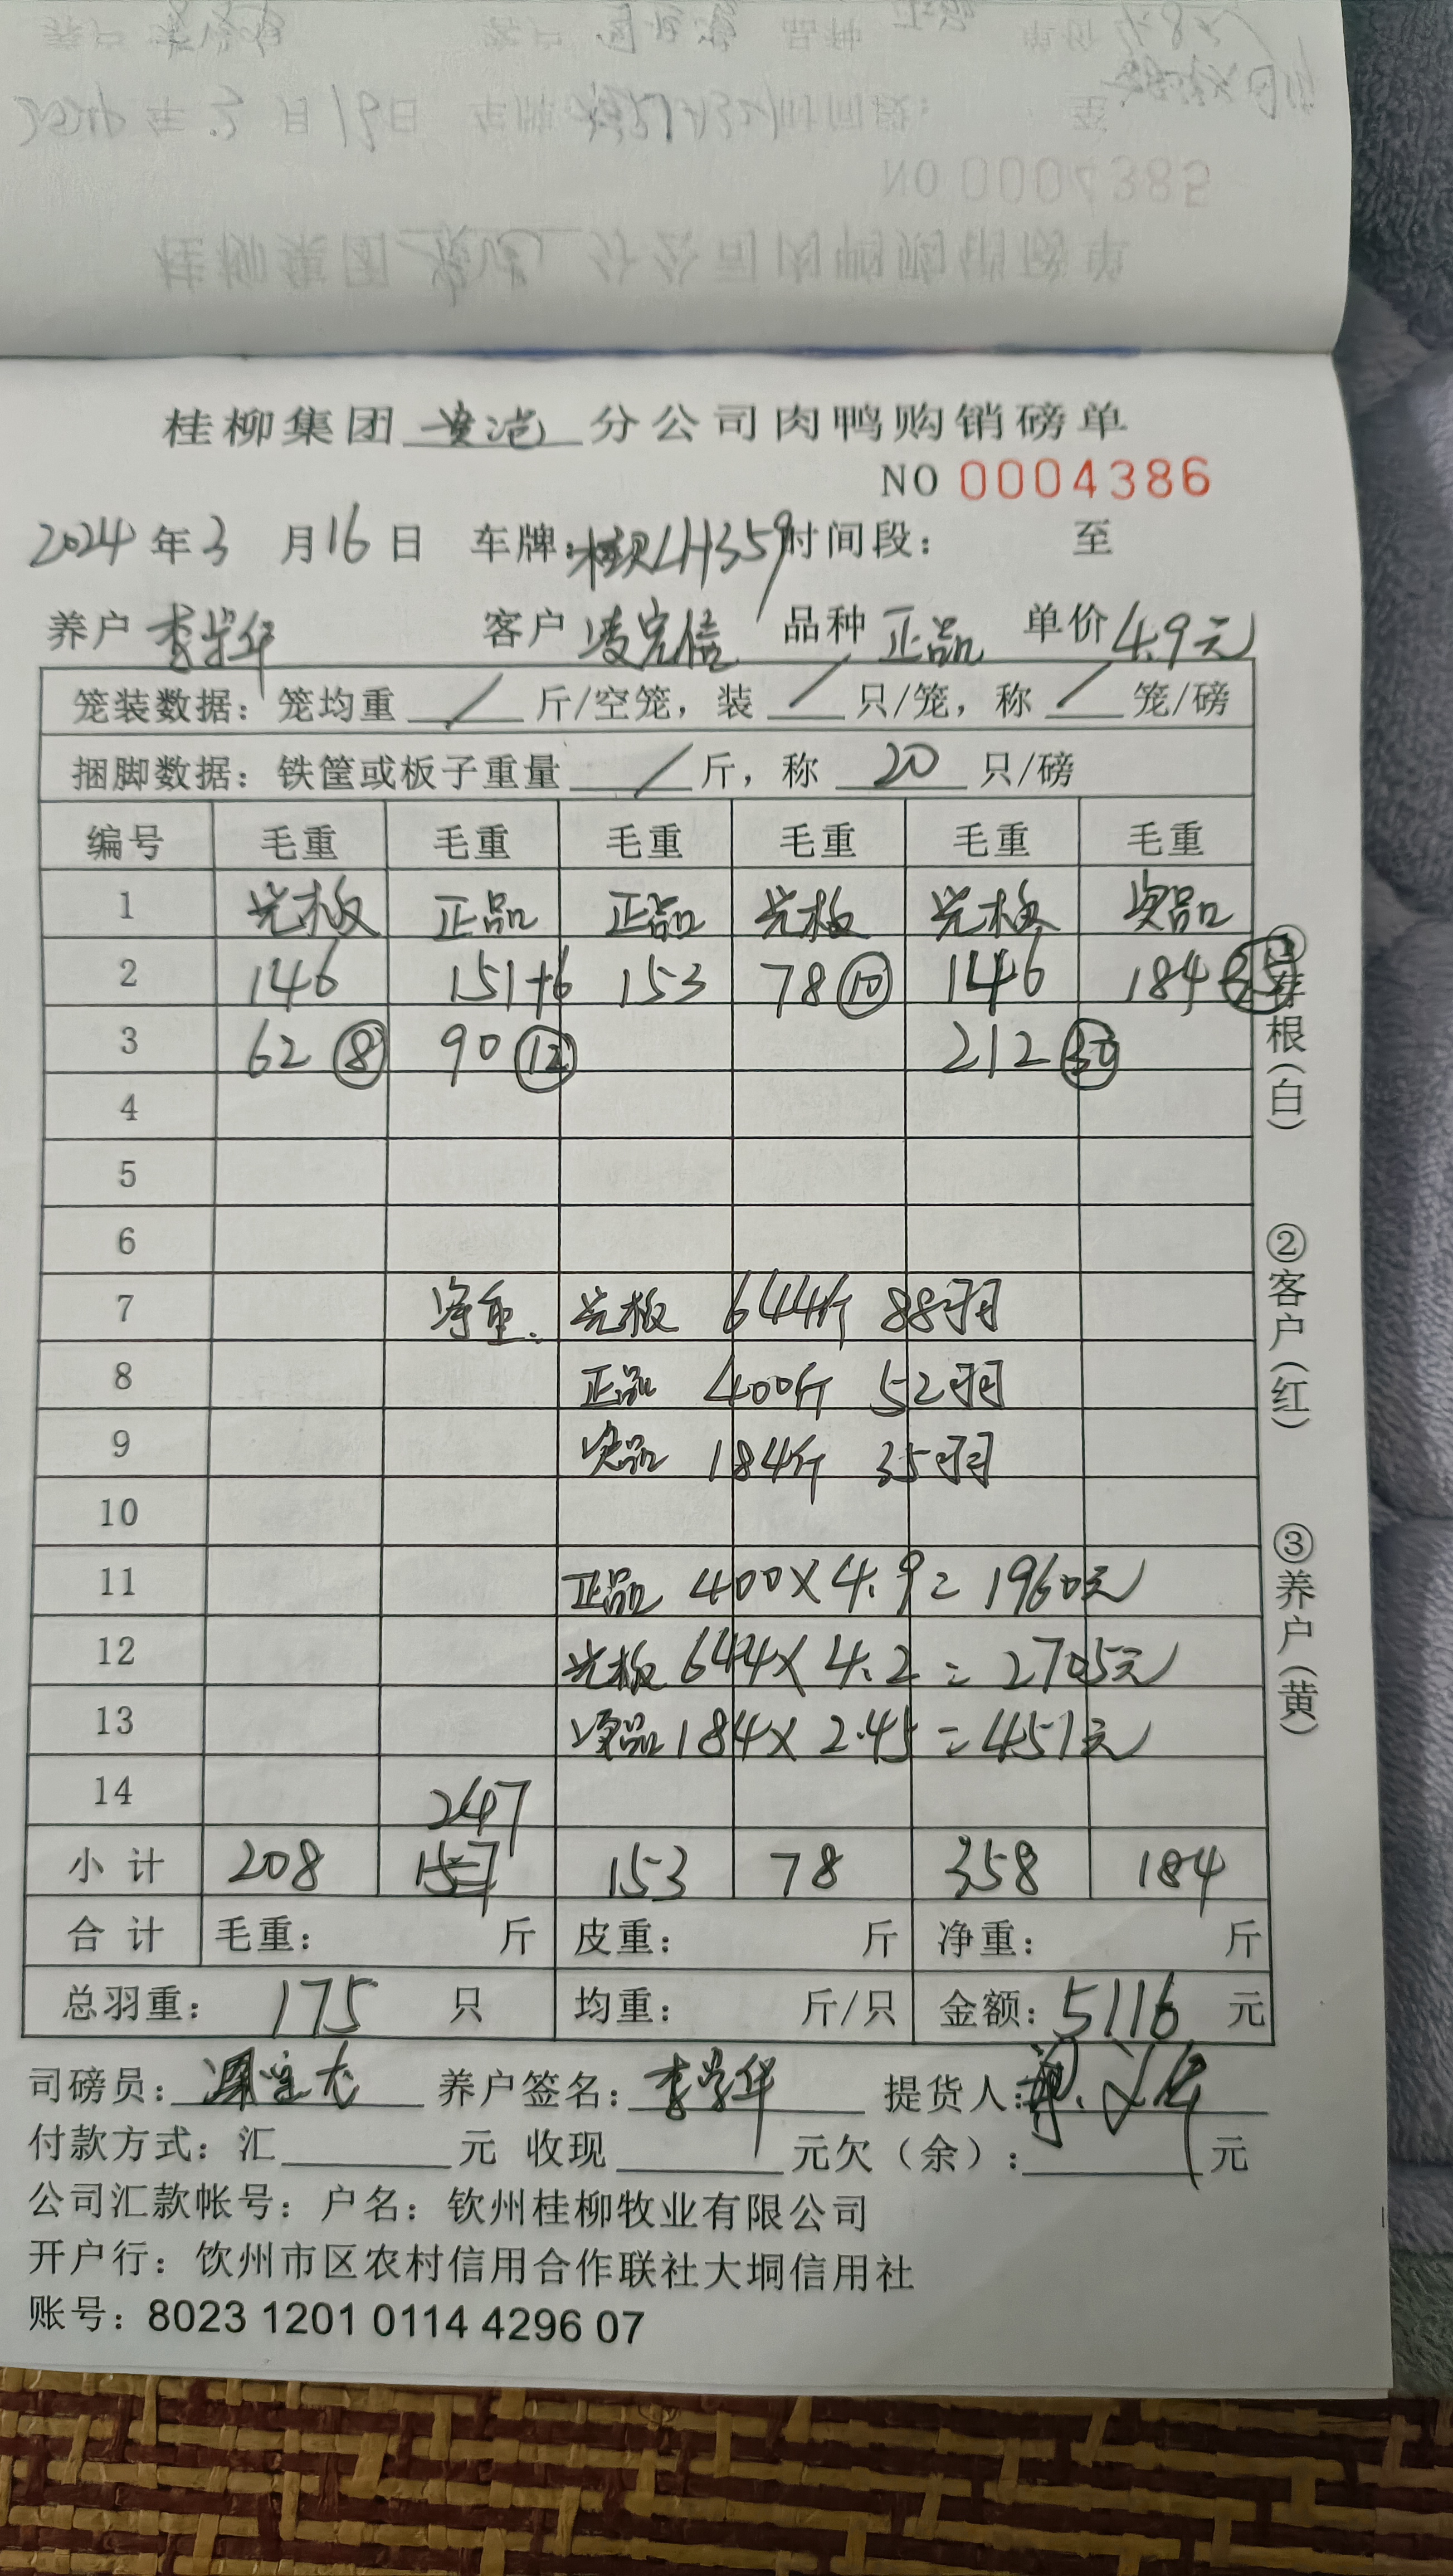 NO 0004385
桂柳集团 分公司肉鸭购销磅单
NO 0004386
2024年3月16日 车牌: 时间段: 至
养户 李学华 客户 凌宏信 品种 正品 单价 4.9元
笼装数据: 笼均重 / 斤/空笼, 装 / 只/笼, 称 / 笼/磅
捆脚数据: 铁筐或板子重量 / 斤, 称 20 只/磅
编号 毛重 毛重 毛重 毛重 毛重 毛重
1 光板 正品 正品 光板 光板 次品
2 146 151+6 153 78⑩ 146 184㉟
3 62⑧ 90⑫ 212㊿
4
5
6
7 净重: 光板 644斤 88羽
8 正品 400斤 52羽
9 次品 184斤 35羽
10
11 正品 400×4.9=1960元
12 光板 644×4.2=2705元
13 次品 184×2.45=451元
14 247
小计 208 157 153 78 358 184
合计 毛重: 斤 皮重: 斤 净重: 斤
总羽重: 175 只 均重: 斤/只 金额: 5116 元
司磅员: 养户签名: 李学华 提货人:
付款方式: 汇 元 收现 元欠(余): 元
公司汇款帐号: 户名: 钦州桂柳牧业有限公司
开户行: 饮州市区农村信用合作联社大垌信用社
账号: 8023 1201 0114 4296 07
①存根(白)
②客户(红)
③养户(黄)